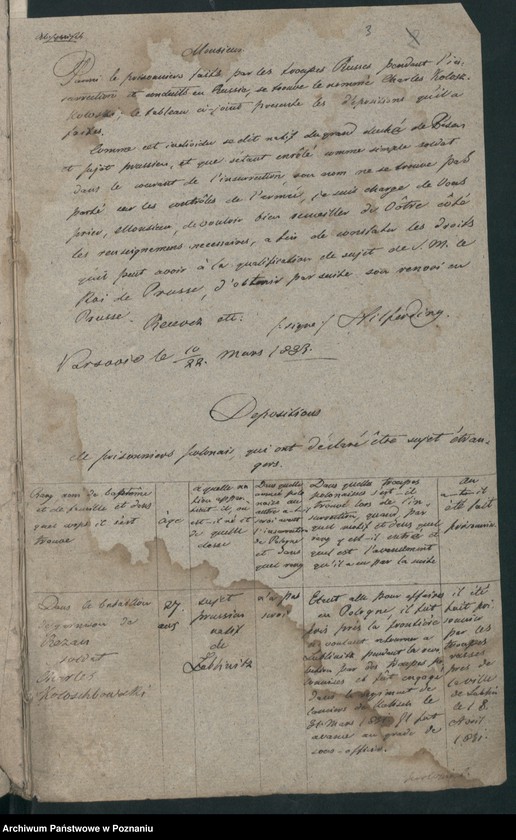 3
Monsieur
Parmi les prisonniers faits par les troupes Russes pendant l'in-
surrection et conduits en Russie, se trouve le nommé Charles Kolosz-
kowski; le tableau ci-joint presente les depositions qu'il a
faites.
Comme cet individu se dit natif du grand duché de Posen
et sujet prussien, et que s'étant enrôlé comme simple soldat
dans le courant de l'insurrection son nom ne se trouve pas
porté sur les contrôles de l'armée, je suis chargé de Vous
prier, Monsieur, de vouloir bien recueillir de Vôtre côté
les renseignemens necessaires, afin de constater les droits
qu'il peut avoir à la qualification de sujet de S. M. le
Roi de Prusse, d'obtenir par suite son renvoi en
Prusse.
Recevez etc: /signé/ Hilferding.
Varsovie le 10/22 Mars 1833.
Depositions
de prisonniers polonais, qui ont déclaré être sujet étran-
gers.
Rang nom de baptême
et de famille et dans
quel corps il s'est
trouvé
âge
a quelle na
tion appar
tient il, ou
est-il né et
de quelle
classe
Dans quelle
armée polo
naise au
servi avant
l'insurrection
de Pologne
et dans
quel rang
Dans quelles troupes
polonaises s'est il
trouvé lors de l'in
surrection, quand, par
quel motif et dans quel
rang y est-il entré et
quel est l'avancement
qu'il a eu par la suite
ou
a-t-il
été fait
prisonnier
Dans le bataillon
de
soldat
Charles
Koloschkowski
27
ans
sujet
prussien
natif
de
Labschinek
n'a pas
servi
Etant allé pour affaires
en Pologne, il fut
pris près la frontière
en voulant retourner à
pendant la revo
lution par des troupes po
lonaises et fut engagé
dans le regiment de
le
Mars 1831. Il fut
avancé au grade de
sous-officier.
il été
fait pri
sonnier
par les
troupes
russes
près de
la ville
de Lublin
le 18.
Avril
1831.
Archiwum Państwowe w Poznaniu